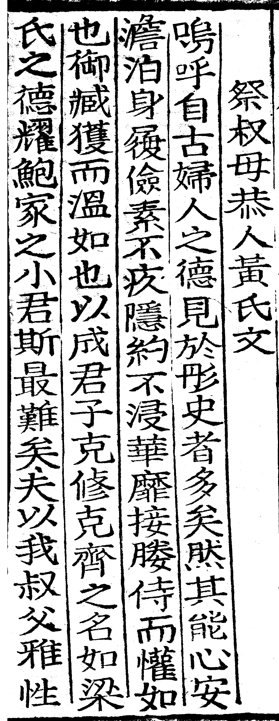 祭叔母恭人黃氏文
嗚呼自古婦人之德見於彤史者多矣然其能心安
澹泊身履儉素不疚隱約不浸華靡接媵侍而懽如
也御臧獲而溫如也以成君子克修克齊之名如梁
氏之德耀鮑家之小君斯最難矣夫以我叔父雅性